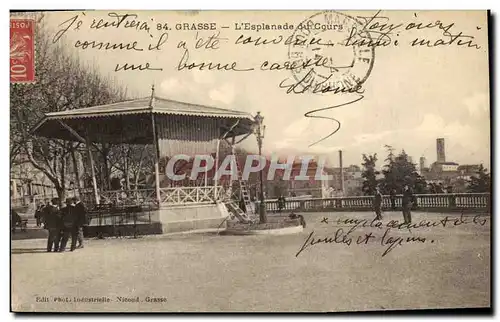 Je rentrerai 84. GRASSE — L'Esplanade du Cours Toujours,
comme il a été convenu lundi matin
une bonne caresse
10
CPHARMA
emplacement des
poules et lapins.
Edit. Phot. Industrielle. Nicoud. Grasse